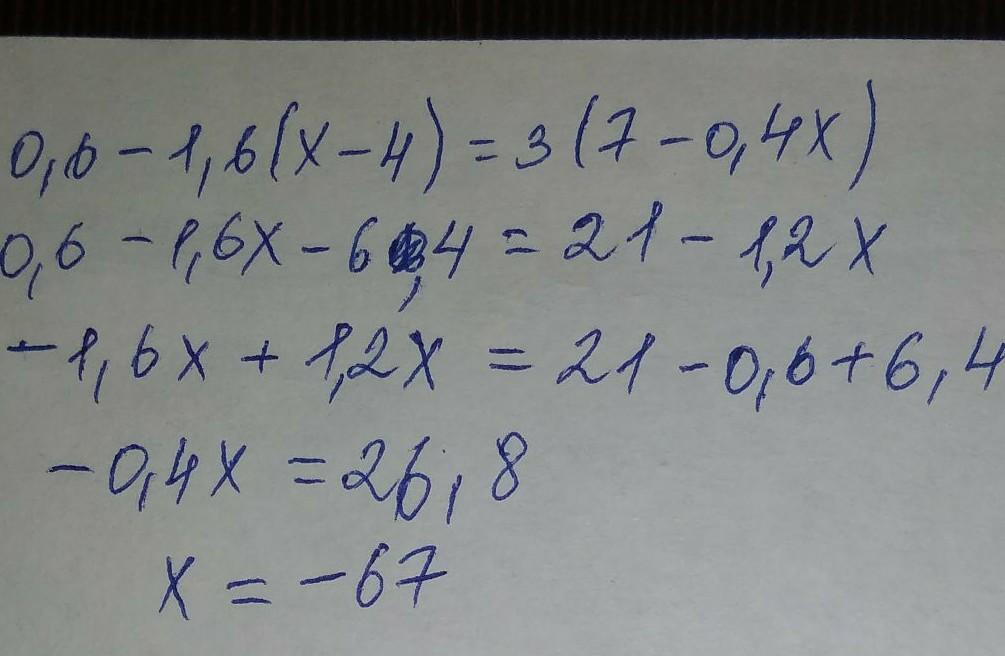 0,6-1,6(x-4)=3(7-0,4x)
0,6-1,6x-6,4=21-1,2x
-1,6x+1,2x=21-0,6+6,4
-0,4x=26,8
x=-67